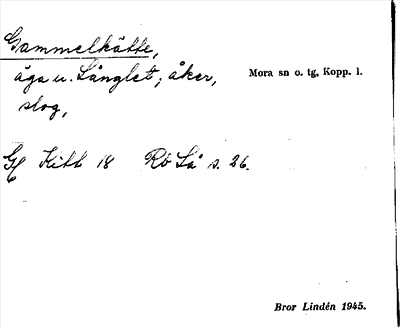 Gammelkätte,
äga u. Långlet; åker, Mora sn o. tg, Kopp. l.
slog,
Gℓ Kitt 18 Rb Lå s. 26.
Bror Lindén 1945.